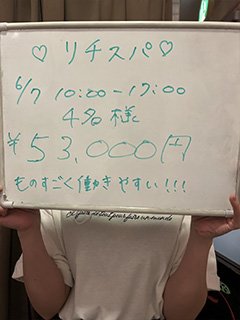 ♡ リチスパ ♡
6/7 10:00-17:00
4名様
¥53,000円
ものすごく働きやすい!!!